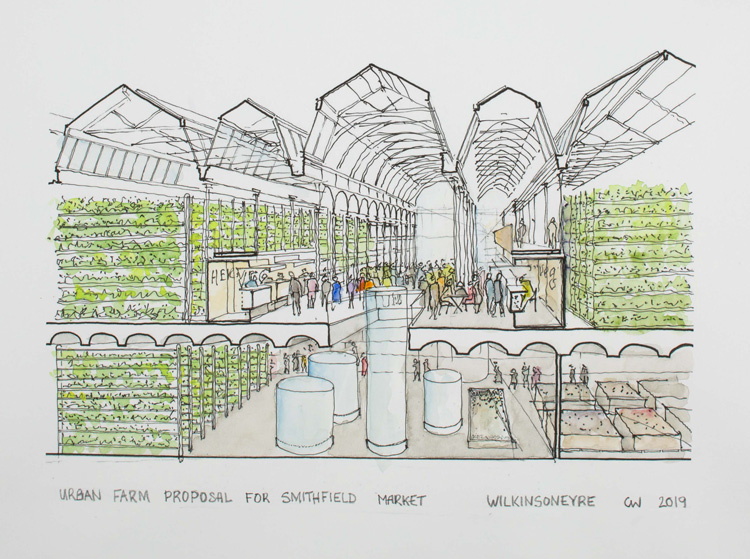 URBAN FARM PROPOSAL FOR SMITHFIELD MARKET WILKINSONEYRE CW 2019